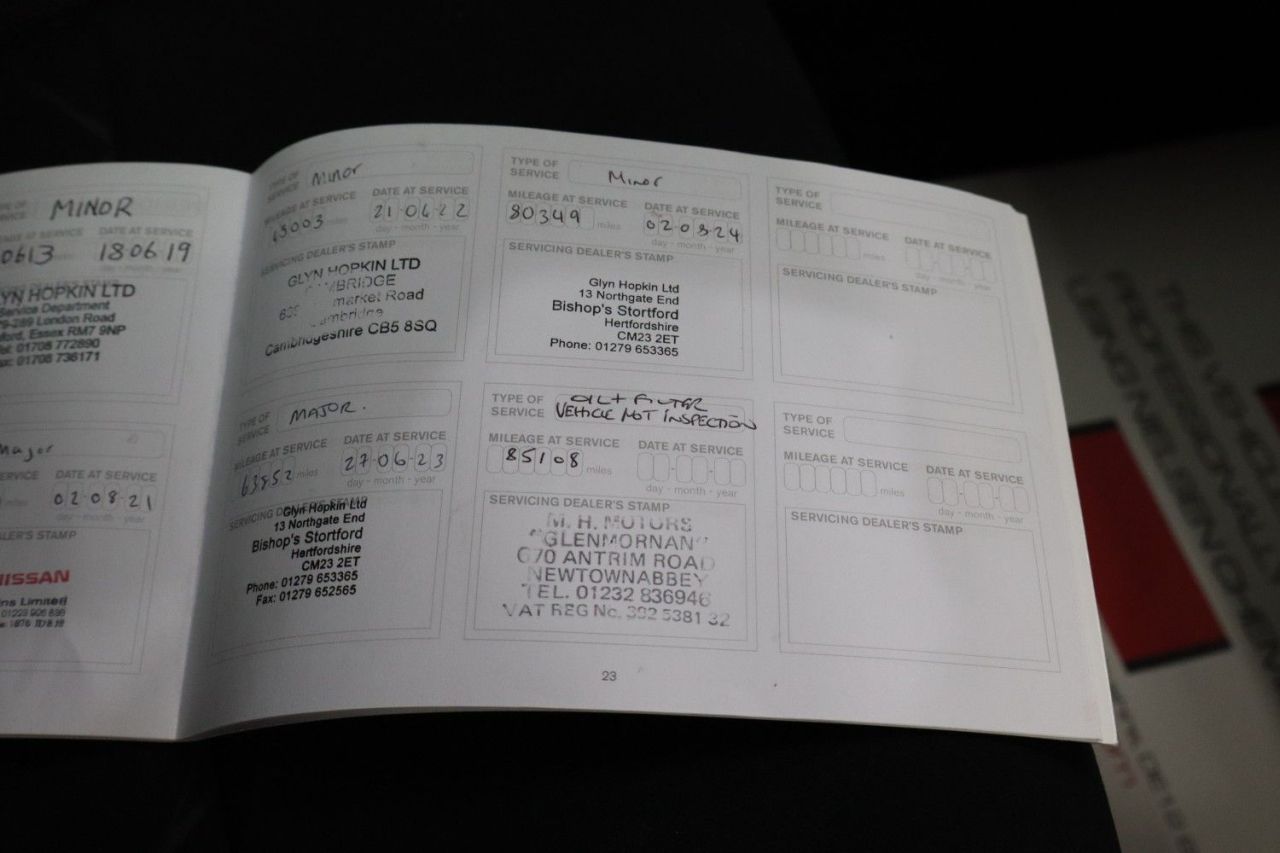 MINOR
DATE AT SERVICE
0613
18 06 19
day - month - year
YN HOPKIN LTD
Service Department
9-289 London Road
ford, Essex RM7 9NP
Tel: 01708 772890
Fax: 01708 736171
Major
SERVICE
DATE AT SERVICE
miles
02 08 21
day - month - year
ER'S STAMP
NISSAN
ns Limited
TYPE OF SERVICE
Minor
MILEAGE AT SERVICE
DATE AT SERVICE
miles
21 06 22
day - month - year
SERVICING DEALER'S STAMP
GLYN HOPKIN LTD
MBRIDGE
market Road
ambridge
Cambridgeshire CB5 8SQ
TYPE OF SERVICE
MAJOR.
MILEAGE AT SERVICE
DATE AT SERVICE
63852 miles
27 06 23
day - month - year
SERVICING DEALER'S STAMP
Glyn Hopkin Ltd
13 Northgate End
Bishop's Stortford
Hertfordshire
CM23 2ET
Phone: 01279 653365
Fax: 01279 652565
TYPE OF SERVICE
Minor
MILEAGE AT SERVICE
DATE AT SERVICE
80349 miles
02 08 24
day - month - year
SERVICING DEALER'S STAMP
Glyn Hopkin Ltd
13 Northgate End
Bishop's Stortford
Hertfordshire
CM23 2ET
Phone: 01279 653365
TYPE OF SERVICE
OIL + FILTER
VEHICLE MOT INSPECTION
MILEAGE AT SERVICE
DATE AT SERVICE
85108 miles
day - month - year
SERVICING DEALER'S STAMP
M. H. MOTORS
"GLENMORNAN"
670 ANTRIM ROAD
NEWTOWNABBEY
TEL. 01232 836946
VAT REG No. 392 5381 32
TYPE OF SERVICE
MILEAGE AT SERVICE
DATE AT SERVICE
miles
day - month - year
SERVICING DEALER'S STAMP
TYPE OF SERVICE
MILEAGE AT SERVICE
DATE AT SERVICE
miles
day - month - year
SERVICING DEALER'S STAMP
23
THIS VEH
PROFESSIONALLY
USING